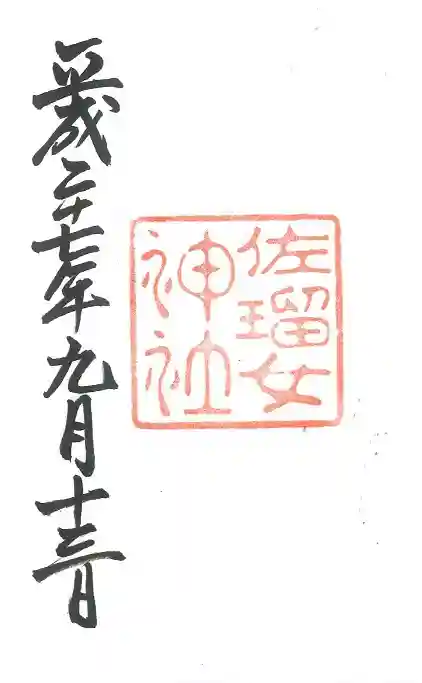 佐瑠女
神社
平成二十七年九月十三日